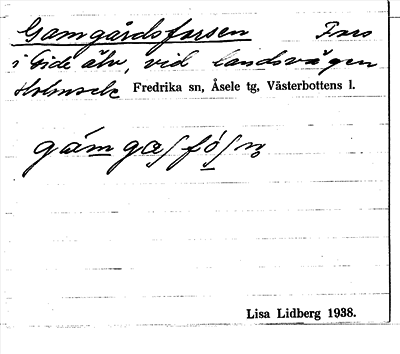 Gamgårdsforsen Fors
i Gide älv, vid landsvägen
Holmsele Fredrika sn, Åsele tg, Västerbottens l.
Lisa Lidberg 1938.